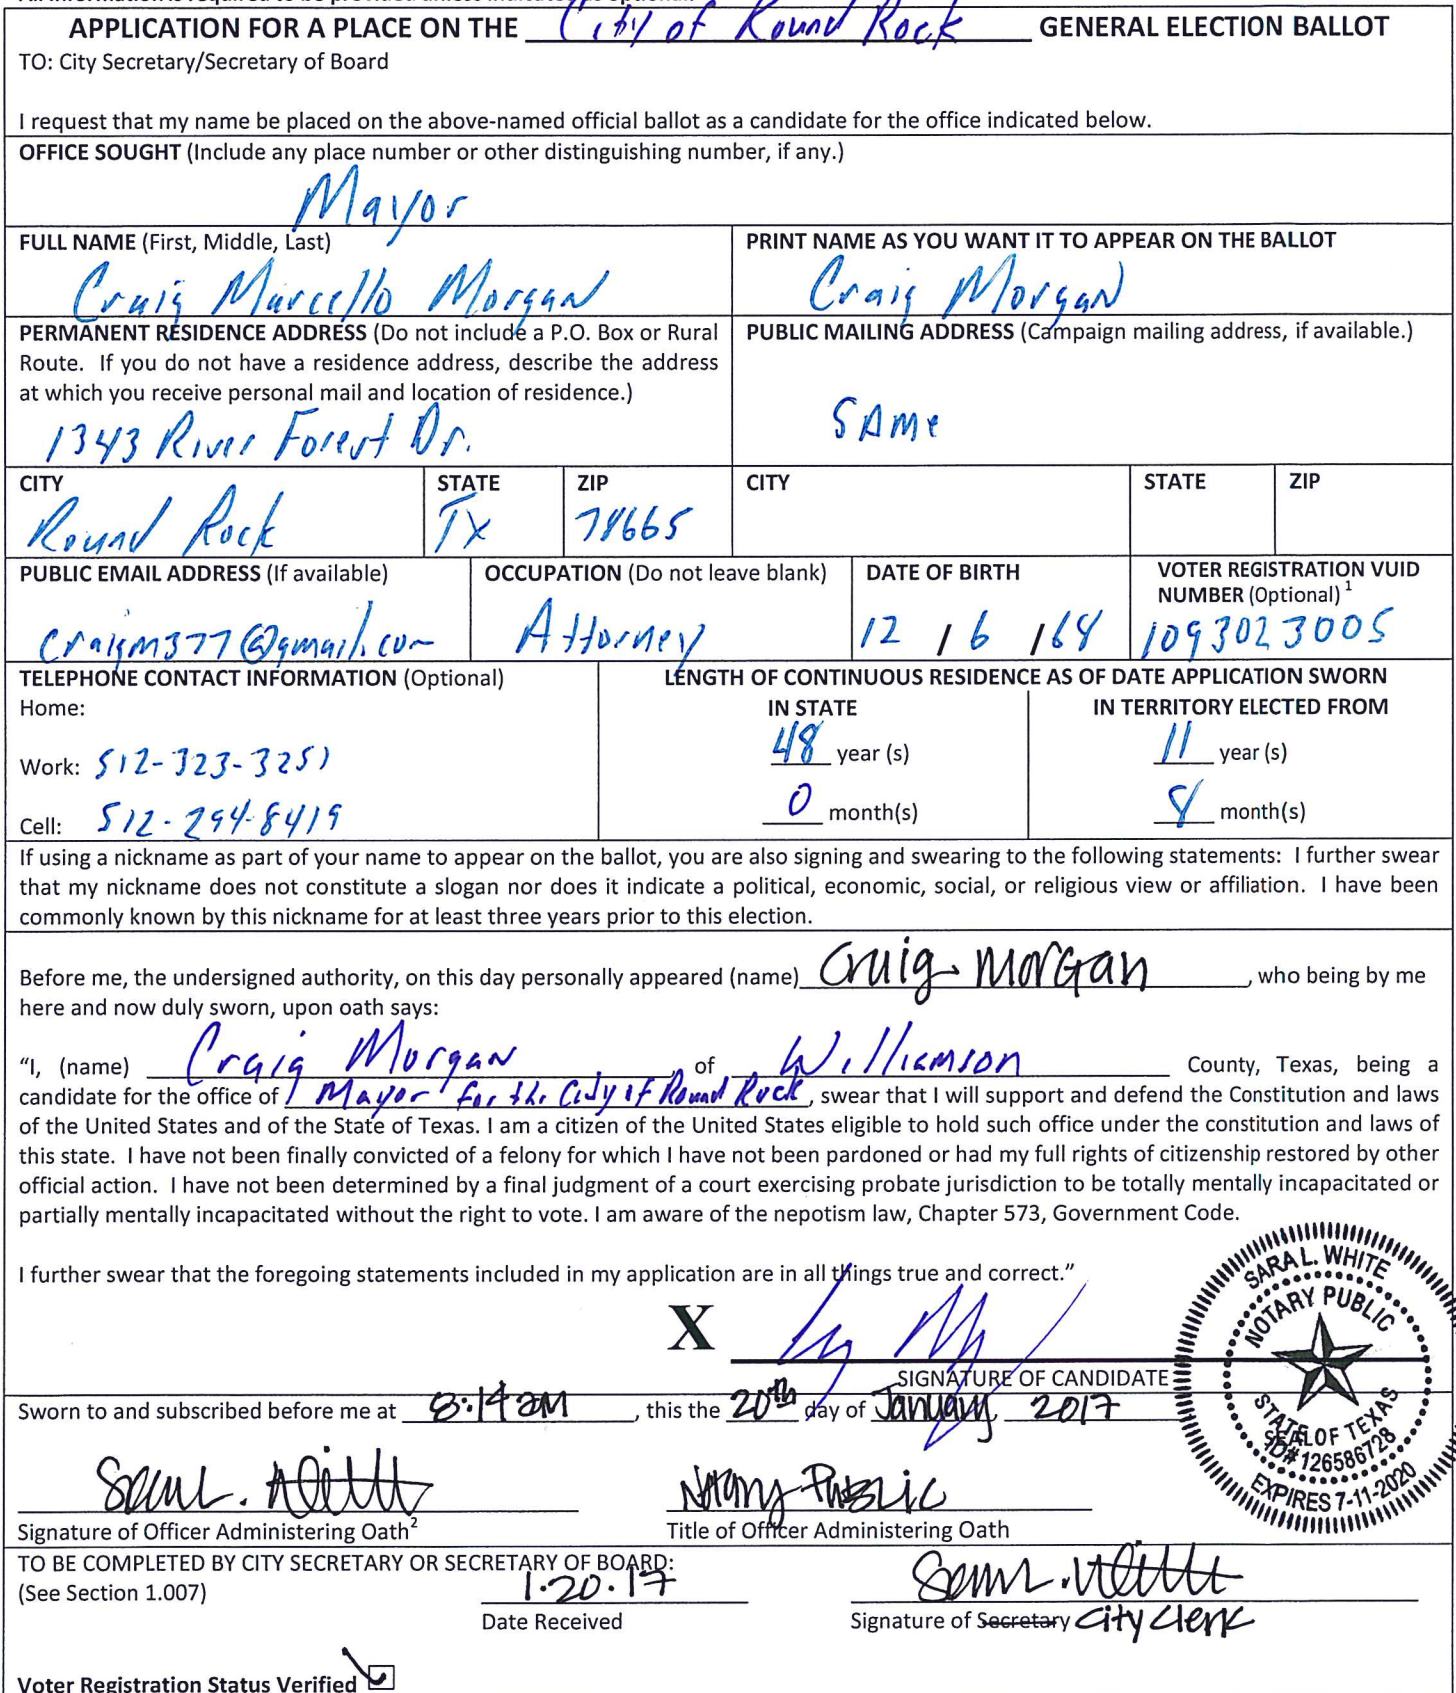 APPLICATION FOR A PLACE ON THE City of Round Rock GENERAL ELECTION BALLOT
TO: City Secretary/Secretary of Board
I request that my name be placed on the above-named official ballot as a candidate for the office indicated below.
OFFICE SOUGHT (Include any place number or other distinguishing number, if any.)
Mayor
FULL NAME (First, Middle, Last)
Craig Marcello Morgan
PRINT NAME AS YOU WANT IT TO APPEAR ON THE BALLOT
Craig Morgan
PERMANENT RESIDENCE ADDRESS (Do not include a P.O. Box or Rural
Route. If you do not have a residence address, describe the address
at which you receive personal mail and location of residence.)
1343 River Forest Dr.
PUBLIC MAILING ADDRESS (Campaign mailing address, if available.)
SAME
CITY
Round Rock
STATE
TX
ZIP
78665
CITY
STATE
ZIP
PUBLIC EMAIL ADDRESS (If available)
craigm377@gmail.com
OCCUPATION (Do not leave blank)
Attorney
DATE OF BIRTH
12 / 6 / 68
VOTER REGISTRATION VUID
NUMBER (Optional) 1
1093023005
TELEPHONE CONTACT INFORMATION (Optional)
Home:
Work: 512-323-3251
Cell: 512-294-8419
LENGTH OF CONTINUOUS RESIDENCE AS OF DATE APPLICATION SWORN
IN STATE
48 year (s)
0 month(s)
IN TERRITORY ELECTED FROM
11 year (s)
8 month(s)
If using a nickname as part of your name to appear on the ballot, you are also signing and swearing to the following statements: I further swear
that my nickname does not constitute a slogan nor does it indicate a political, economic, social, or religious view or affiliation. I have been
commonly known by this nickname for at least three years prior to this election.
Before me, the undersigned authority, on this day personally appeared (name) Craig Morgan, who being by me
here and now duly sworn, upon oath says:
"I, (name) Craig Morgan, of Williamson County, Texas, being a
candidate for the office of Mayor for the City of Round Rock, swear that I will support and defend the Constitution and laws
of the United States and of the State of Texas. I am a citizen of the United States eligible to hold such office under the constitution and laws of
this state. I have not been finally convicted of a felony for which I have not been pardoned or had my full rights of citizenship restored by other
official action. I have not been determined by a final judgment of a court exercising probate jurisdiction to be totally mentally incapacitated or
partially mentally incapacitated without the right to vote. I am aware of the nepotism law, Chapter 573, Government Code.
I further swear that the foregoing statements included in my application are in all things true and correct."
X
SIGNATURE OF CANDIDATE
SARA L. WHITE
NOTARY PUBLIC
STATE OF TEXAS
SEAL
ID# 126586728
EXPIRES 7-11-2020
Sworn to and subscribed before me at 8:14 am, this the 20th day of January, 2017
Sara L. White
Signature of Officer Administering Oath2
Notary Public
Title of Officer Administering Oath
TO BE COMPLETED BY CITY SECRETARY OR SECRETARY OF BOARD:
(See Section 1.007)
1.20.17
Date Received
Sara L. White
Signature of Secretary City Clerk
Voter Registration Status Verified